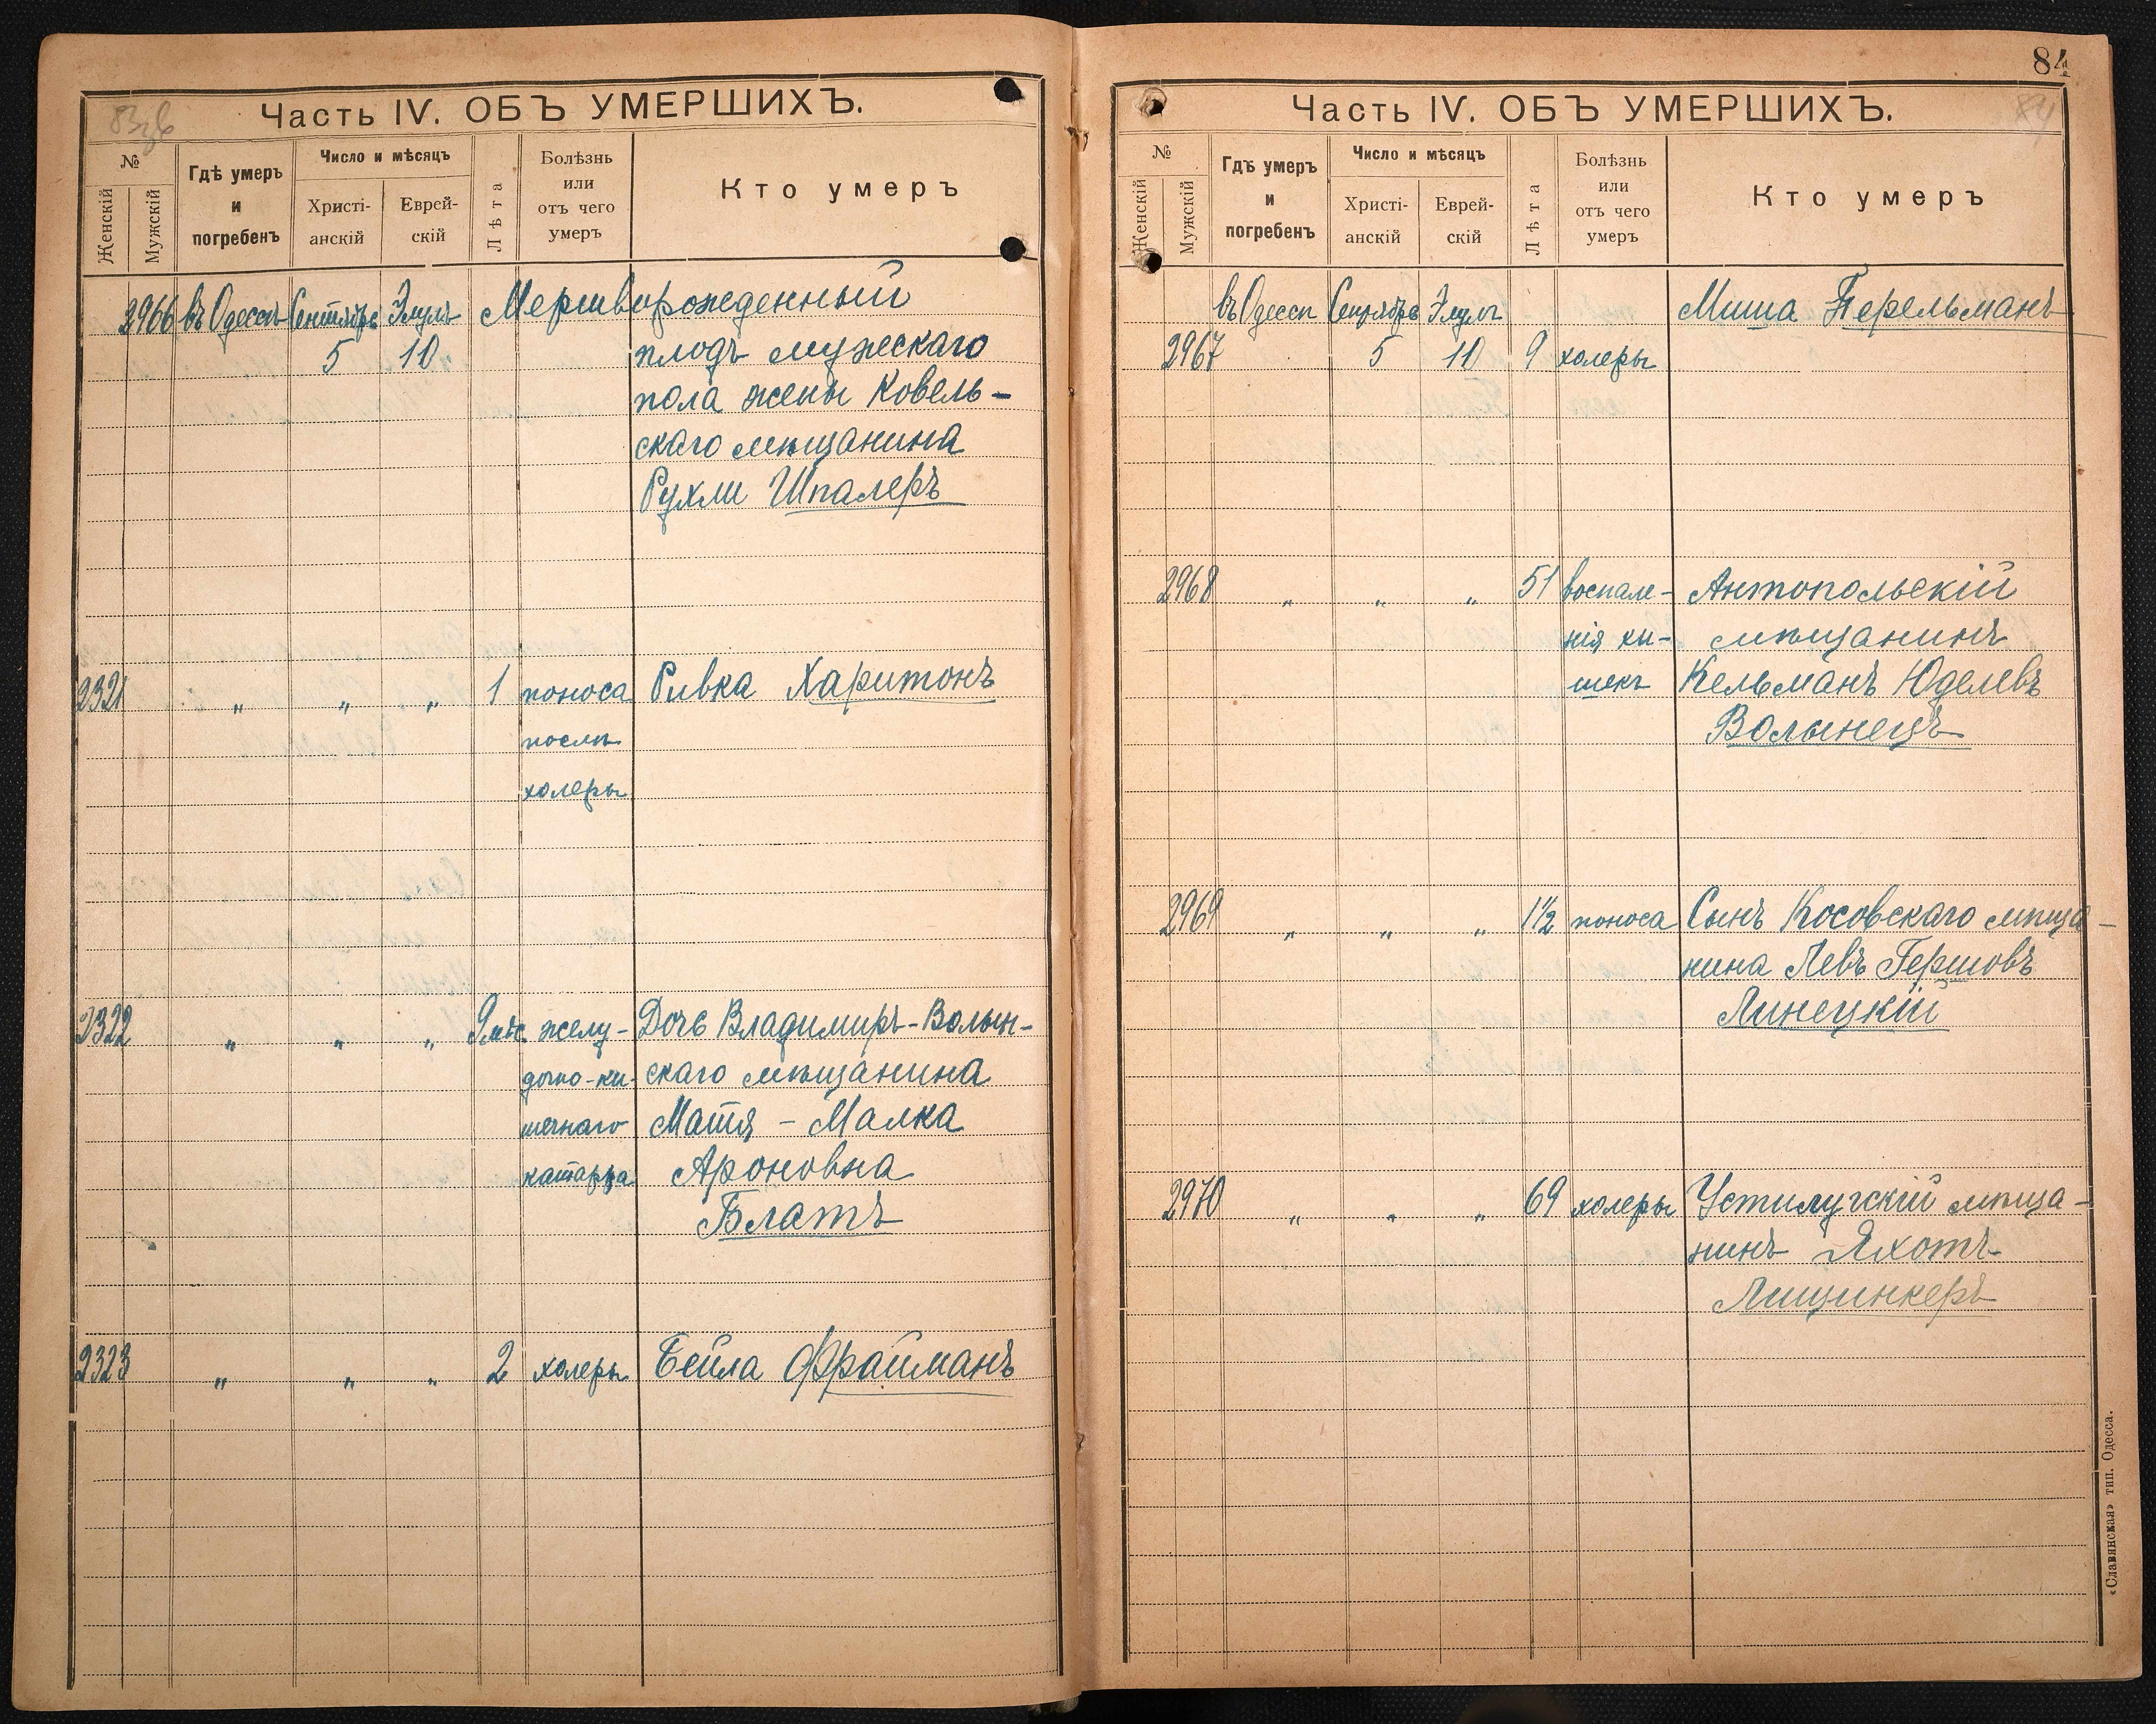 83об
Часть IV. ОБЪ УМЕРШИХЪ.
№
Женскій
Мужскій
Гдѣ умеръ
и
погребенъ
Число и мѣсяцъ
Христі-
анскій
Еврей-
скій
Лѣта
Болѣзнь
или
отъ чего
умеръ
Кто умеръ
2966 въ Одессѣ Сентябрь Элулъ Мертворожденный
5 10 плодъ мужескаго
пола жены Ковель-
скаго мѣщанина
Рухли Шпалеръ
2321 " " " 1 поноса Ривка Харитонъ
послѣ
холеры
2322 " " " 9 мѣс. желу- Дочь Владимиръ-Волын-
дочно-ки- скаго мѣщанина
шечнаго Матя - Малка
катарра Ароновна
Блатъ
2323 " " " 2 холеры Бейла Фрайманъ
84
84
Часть IV. ОБЪ УМЕРШИХЪ.
№
Женскій
Мужскій
Гдѣ умеръ
и
погребенъ
Число и мѣсяцъ
Христі-
анскій
Еврей-
скій
Лѣта
Болѣзнь
или
отъ чего
умеръ
Кто умеръ
въ Одессѣ Сентябрь Элулъ Миша Перельманъ
2967 5 10 9 холеры
2968 " " " 51 воспале- Антопольскій
нія ки- мѣщанинъ
шекъ Кельманъ Юделевъ
Волынецъ
2969 " " " 1½ поноса Сынъ Косовскаго мѣща-
нина Левъ Гершовъ
Линецкій
2970 " " " 69 холеры Устилугскій мѣща-
нинъ Яхотъ
Лищинкеръ
«Славянская» тип. Одесса.